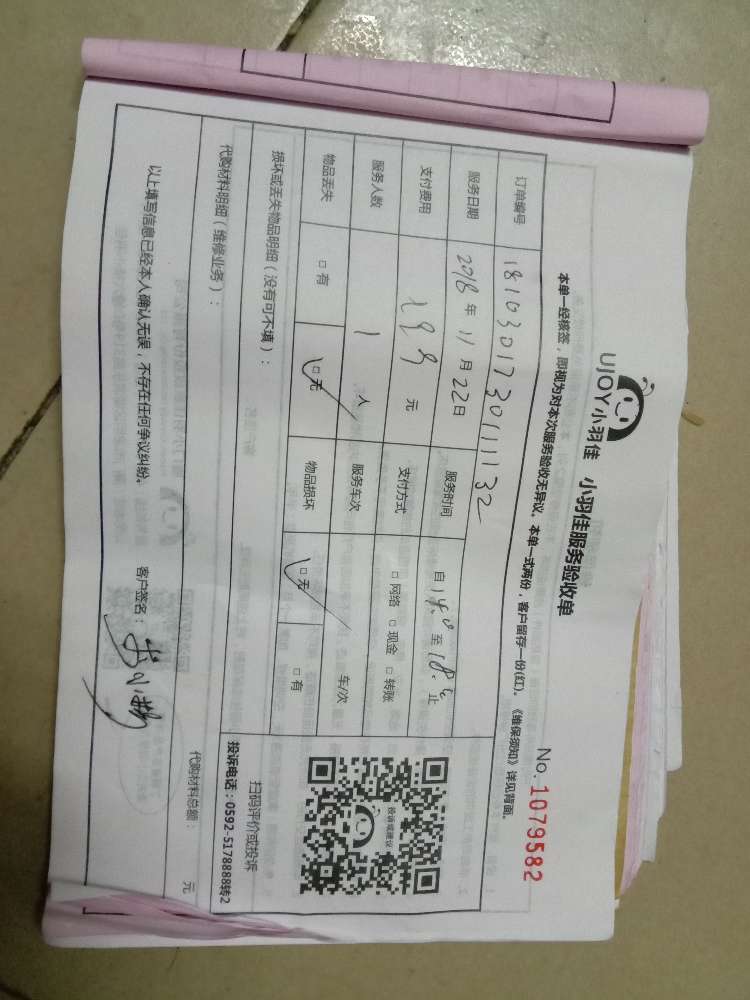 UJOY小羽佳 小羽佳服务验收单
No. 1079582
本单一经核签，即视为对本次服务验收无异议。本单一式两份，客户留存一份(红)。《维保须知》详见背面。
订单编号 181030173011132
服务日期 2018年11月22日 服务时间 自14.0至18.0止
支付费用 199元 支付方式 □网络 □现金 □转账
服务人数 1人 服务车次 车/次
物品丢失 □有 □无 物品损坏 □无 □有
损坏或丢失物品明细（没有可不填）：
投诉或建议
扫码评价或投诉
投诉电话：0592-5178888转2
代购材料明细（维修业务）： 代购材料总额： 元
以上填写信息已经本人确认无误，不存在任何争议纠纷。 客户签名：